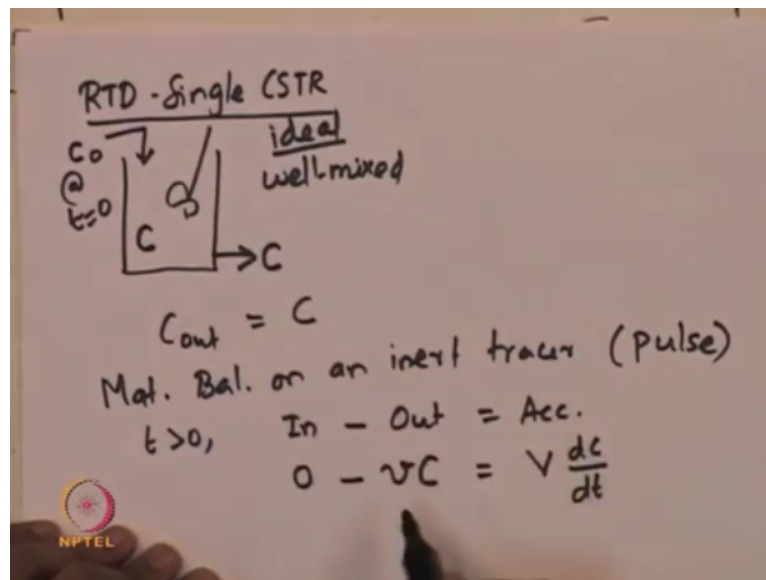 RTD - Single CSTR
ideal
well-mixed
Co
@
t=0
C
C
Cout = C
Mat. Bal. on an inert tracer (pulse)
t >0, In - Out = Acc.
0 - vC = V dc/dt
NPTEL